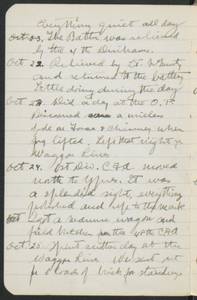 Everything quiet all day
Oct 23. The Battn was relieved
by the 4th Durhams.
Oct 22. Relieved by Lt. McGinty
and returned to the battery
Little doing during the day
Oct 23. Did a day at the O.P.
Discovered a wireless
pole as House & Chimney when
fog lifted. Left that night for
Waggon Lines.
Oct 24. 1st Div. C.F.A. moved
north to Ypres. It was
a splendid sight, everything
polished and up to the mark
Got a name wagon and
field kitchen from the 40th CFA
Oct 25. Spent entire day at the
Waggon Line. We sent out
for a load of brick for standings